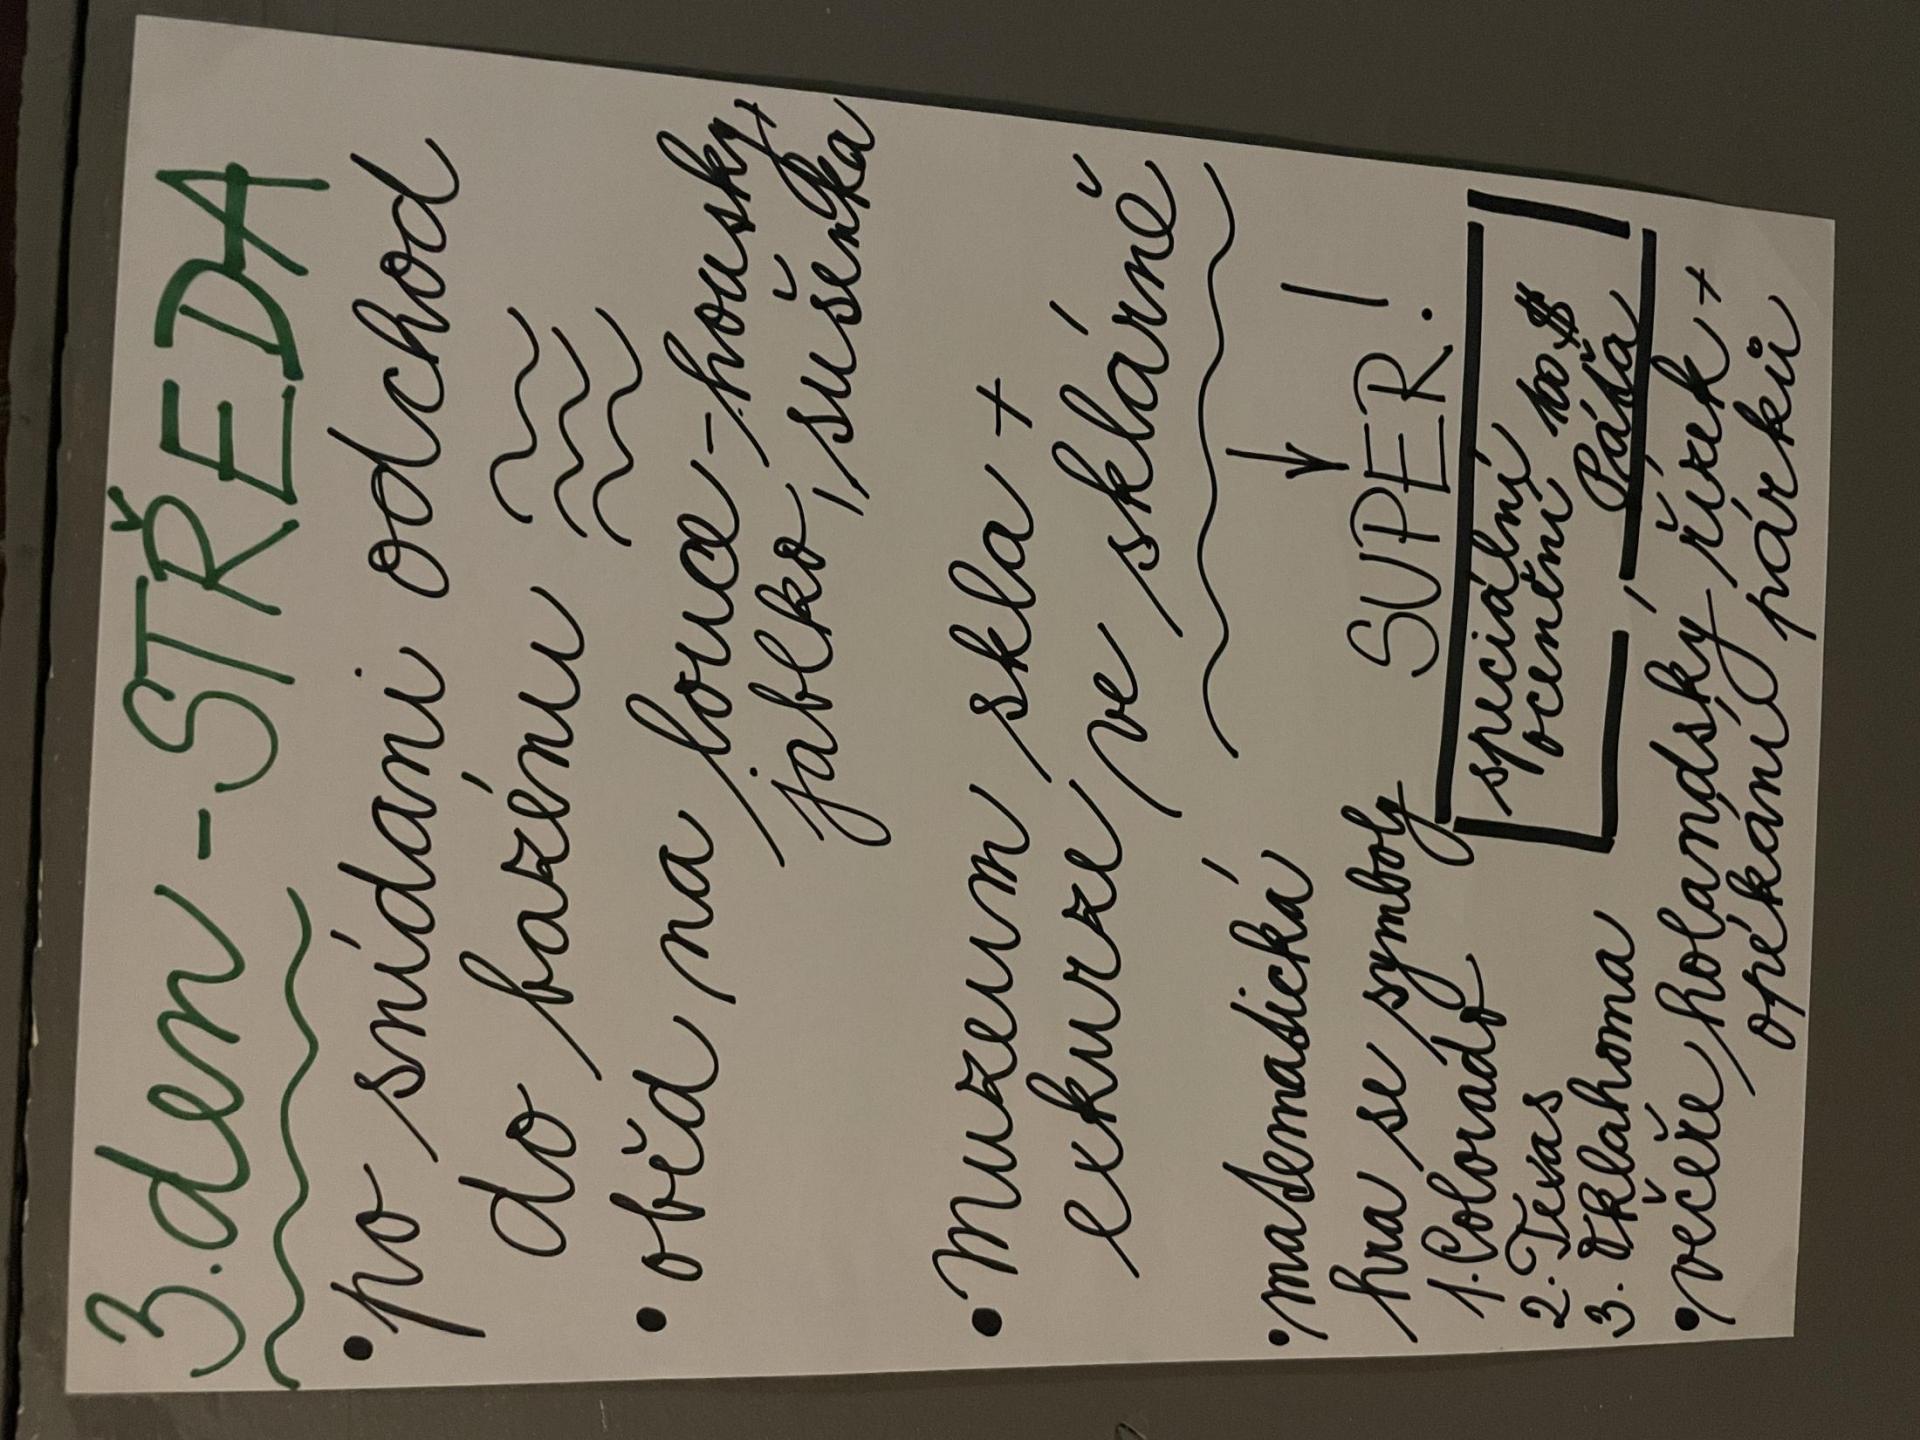 3. den - STŘEDA
• po snídani odchod
do bazénu
• oběd na louce - housky +
jablko, sušenka
• muzeum skla +
exkurze ve sklárně
• matematická
hra se symboly
1. Colorado
2. Texas
3. Oklahoma
SUPER!
speciální
ocenění 100 $
Páťa
• večeře holandský řízek +
opékání párků